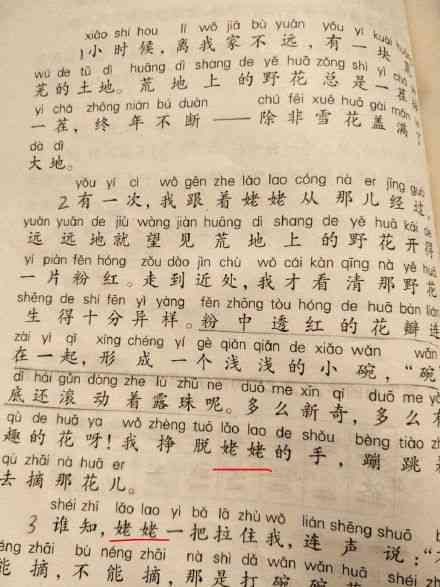 xiǎo shí hou lí wǒ jiā bù yuǎn yǒu yí kuài
1小时候，离我家不远，有一块
wú de tǔ dì huāng dì shang de yě huā zǒng shì yì chá
芜的土地。荒地上的野花总是一茬
yì chá zhōng nián bú duàn chú fēi xuě huā gài mǎn
一茬，终年不断——除非雪花盖满了
dà dì
大地。
yǒu yí cì wǒ gēn zhe lǎo lao cóng nà er jīng guò
2有一次，我跟着姥姥从那儿经过，
yuǎn yuǎn de jiù wàng jiàn huāng dì shang de yě huā kāi de
远远地就望见荒地上的野花开得
yí piàn fěn hóng zǒu dào jìn chù wǒ cái kàn qīng nà yě huā
一片粉红。走到近处，我才看清那野花
shēng de shí fēn yì yàng fěn zhōng tòu hóng de huā bàn lián
生得十分异样。粉中透红的花瓣连
zài yì qǐ xíng chéng yí gè qiǎn qiǎn de xiǎo wǎn wǎn
在一起，形成一个浅浅的小碗，“碗”
dǐ hái gǔn dòng zhe lù zhū ne duō me xīn qí duō me yǒu
底还滚动着露珠呢。多么新奇，多么有
qù de huā ya wǒ zhèng tuō lǎo lao de shǒu bèng tiào zhe
趣的花呀！我挣脱姥姥的手，蹦跳着
qù zhāi nà huā er
去摘那花儿。
shéi zhī lǎo lao yì bǎ lā zhù wǒ lián shēng shuō
3谁知，姥姥一把拉住我，连声说：“
néng zhāi bù néng zhāi nà shì dǎ wǎn wǎn huā shéi
能摘，不能摘，那是打碗碗花